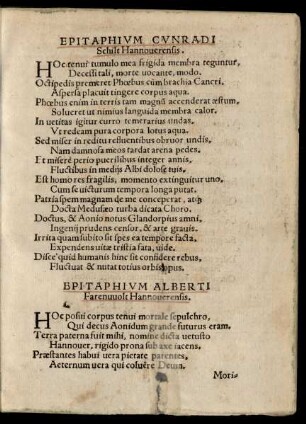 EPITAPHIVM CVNRADI
Schilt Hannouerensis.
HOc tenui tumulo mea frigida membra teguntur,
Decessi tali, morte uocante, modo.
Octipedis premeret Phœbus cũm brachia Cancri
Aspersa placuit tingere corpus aqua.
Phœbus enim in terris tam magnũ accenderat æstum,
Solueret ut nimius languida membra calor.
In uetitas igitur curro temerarius undas,
Vt redeam pura corpora lotus aqua.
Sed miser in reditu refluentibus obruor undis,
Nam damnosa meos tardat arena pedes.
Et miserè perio puerilibus integer annis,
Fluctibus in medijs Albi dolose tuis.
Est homo res fragilis, momento extinguitur uno,
Cum se uicturum tempora longa putat.
Patria spem magnam de me conceperat, atq́;
Docta Medusæo turba dicata Choro.
Doctus, & Aonio notus Glandorpius amni,
Ingenij prudens censor, & arte grauis.
Irrita quam subito sit spes ea tempore facta,
Expendens uitæ tristia fata, uide.
Disce quid humanis hinc sit considere rebus,
Fluctuat & nutat totius orbis opus.
EPITAPHIVM ALBERTI
Farenuuolt Hannouerensis.
HOc posui corpus tenui mortale sepulchro,
Qui decus Aonidum grande futurus eram.
Terra paterna fuit mihi, nomine dicta uetusto
Hannouer, rigido prona sub axe iacens.
Præstantes habui uera pietate parentes,
Aeternum uera qui coluêre Deum.
Mori-